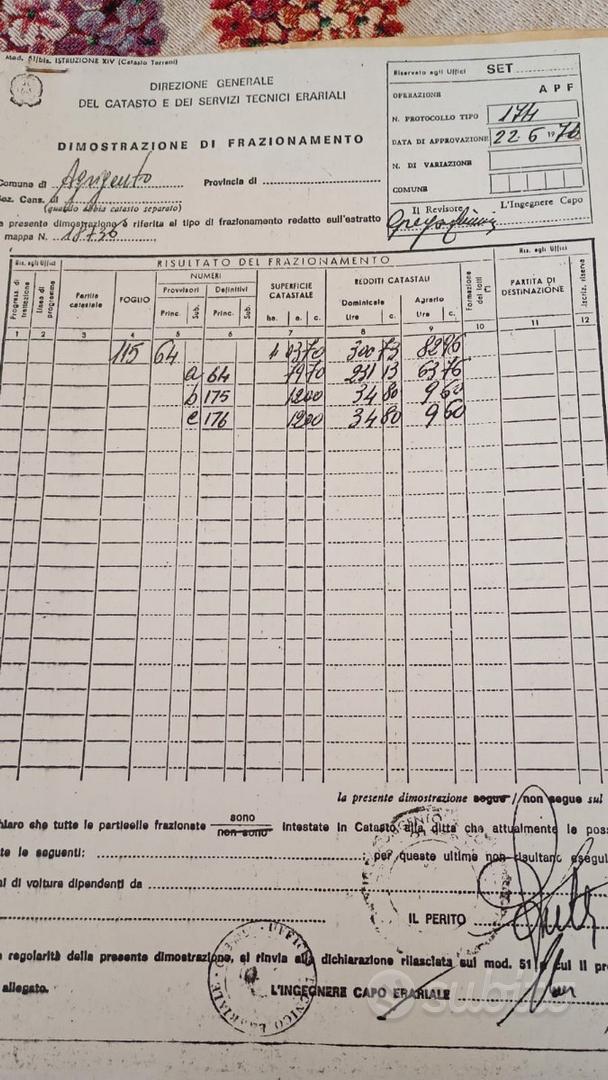 Mod. 51/bis. ISTRUZIONE XIV (Catasto Terreni)
DIREZIONE GENERALE
DEL CATASTO E DEI SERVIZI TECNICI ERARIALI
DIMOSTRAZIONE DI FRAZIONAMENTO
Riservato agli Uffici SET
OPERAZIONE A P F
N. PROTOCOLLO TIPO 174
DATA DI APPROVAZIONE 22-6 1976
N. DI VARIAZIONE
COMUNE
Il Revisore L'Ingegnere Capo
Comune di Agrigento Provincia di
Sez. Cens. di
(qualora abbia catasto separato)
a presente dimostrazione è riferita al tipo di frazionamento redatto sull'estratto
mappa N. 18736
Ris. agli Uffici RISULTATO DEL FRAZIONAMENTO Ris. agli Uffici
Progress. di trattazione Linea di programma Partita catastale FOGLIO NUMERI Provvisori Definitivi Princ. Sub. Princ. Sub. SUPERFICIE CATASTALE ha. a. c. REDDITI CATASTALI Dominicale Lire c. Agrario Lire c. Formazione dei lotti PARTITA DI DESTINAZIONE Iscriz. riserve
1 2 3 4 5 6 7 8 9 10 11 12
115 64 1 0370 300 73 82 96
a 64 7970 231 13 63 76
b 175 1200 34 80 9 60
c 176 1200 34 80 9 60
la presente dimostrazione segue / non segue sul
hiaro che tutte le particelle frazionate sono / non sono intestate in Catasto alla ditta che attualmente le poss
te le seguenti: ; per queste ultime non risultano esegui
i di volture dipendenti da
IL PERITO
regolarità della presente dimostrazione, si rinvia alla dichiarazione rilasciata sul mod. 51 cui il pr
allegato.
L'INGEGNERE CAPO ERARIALE
subito